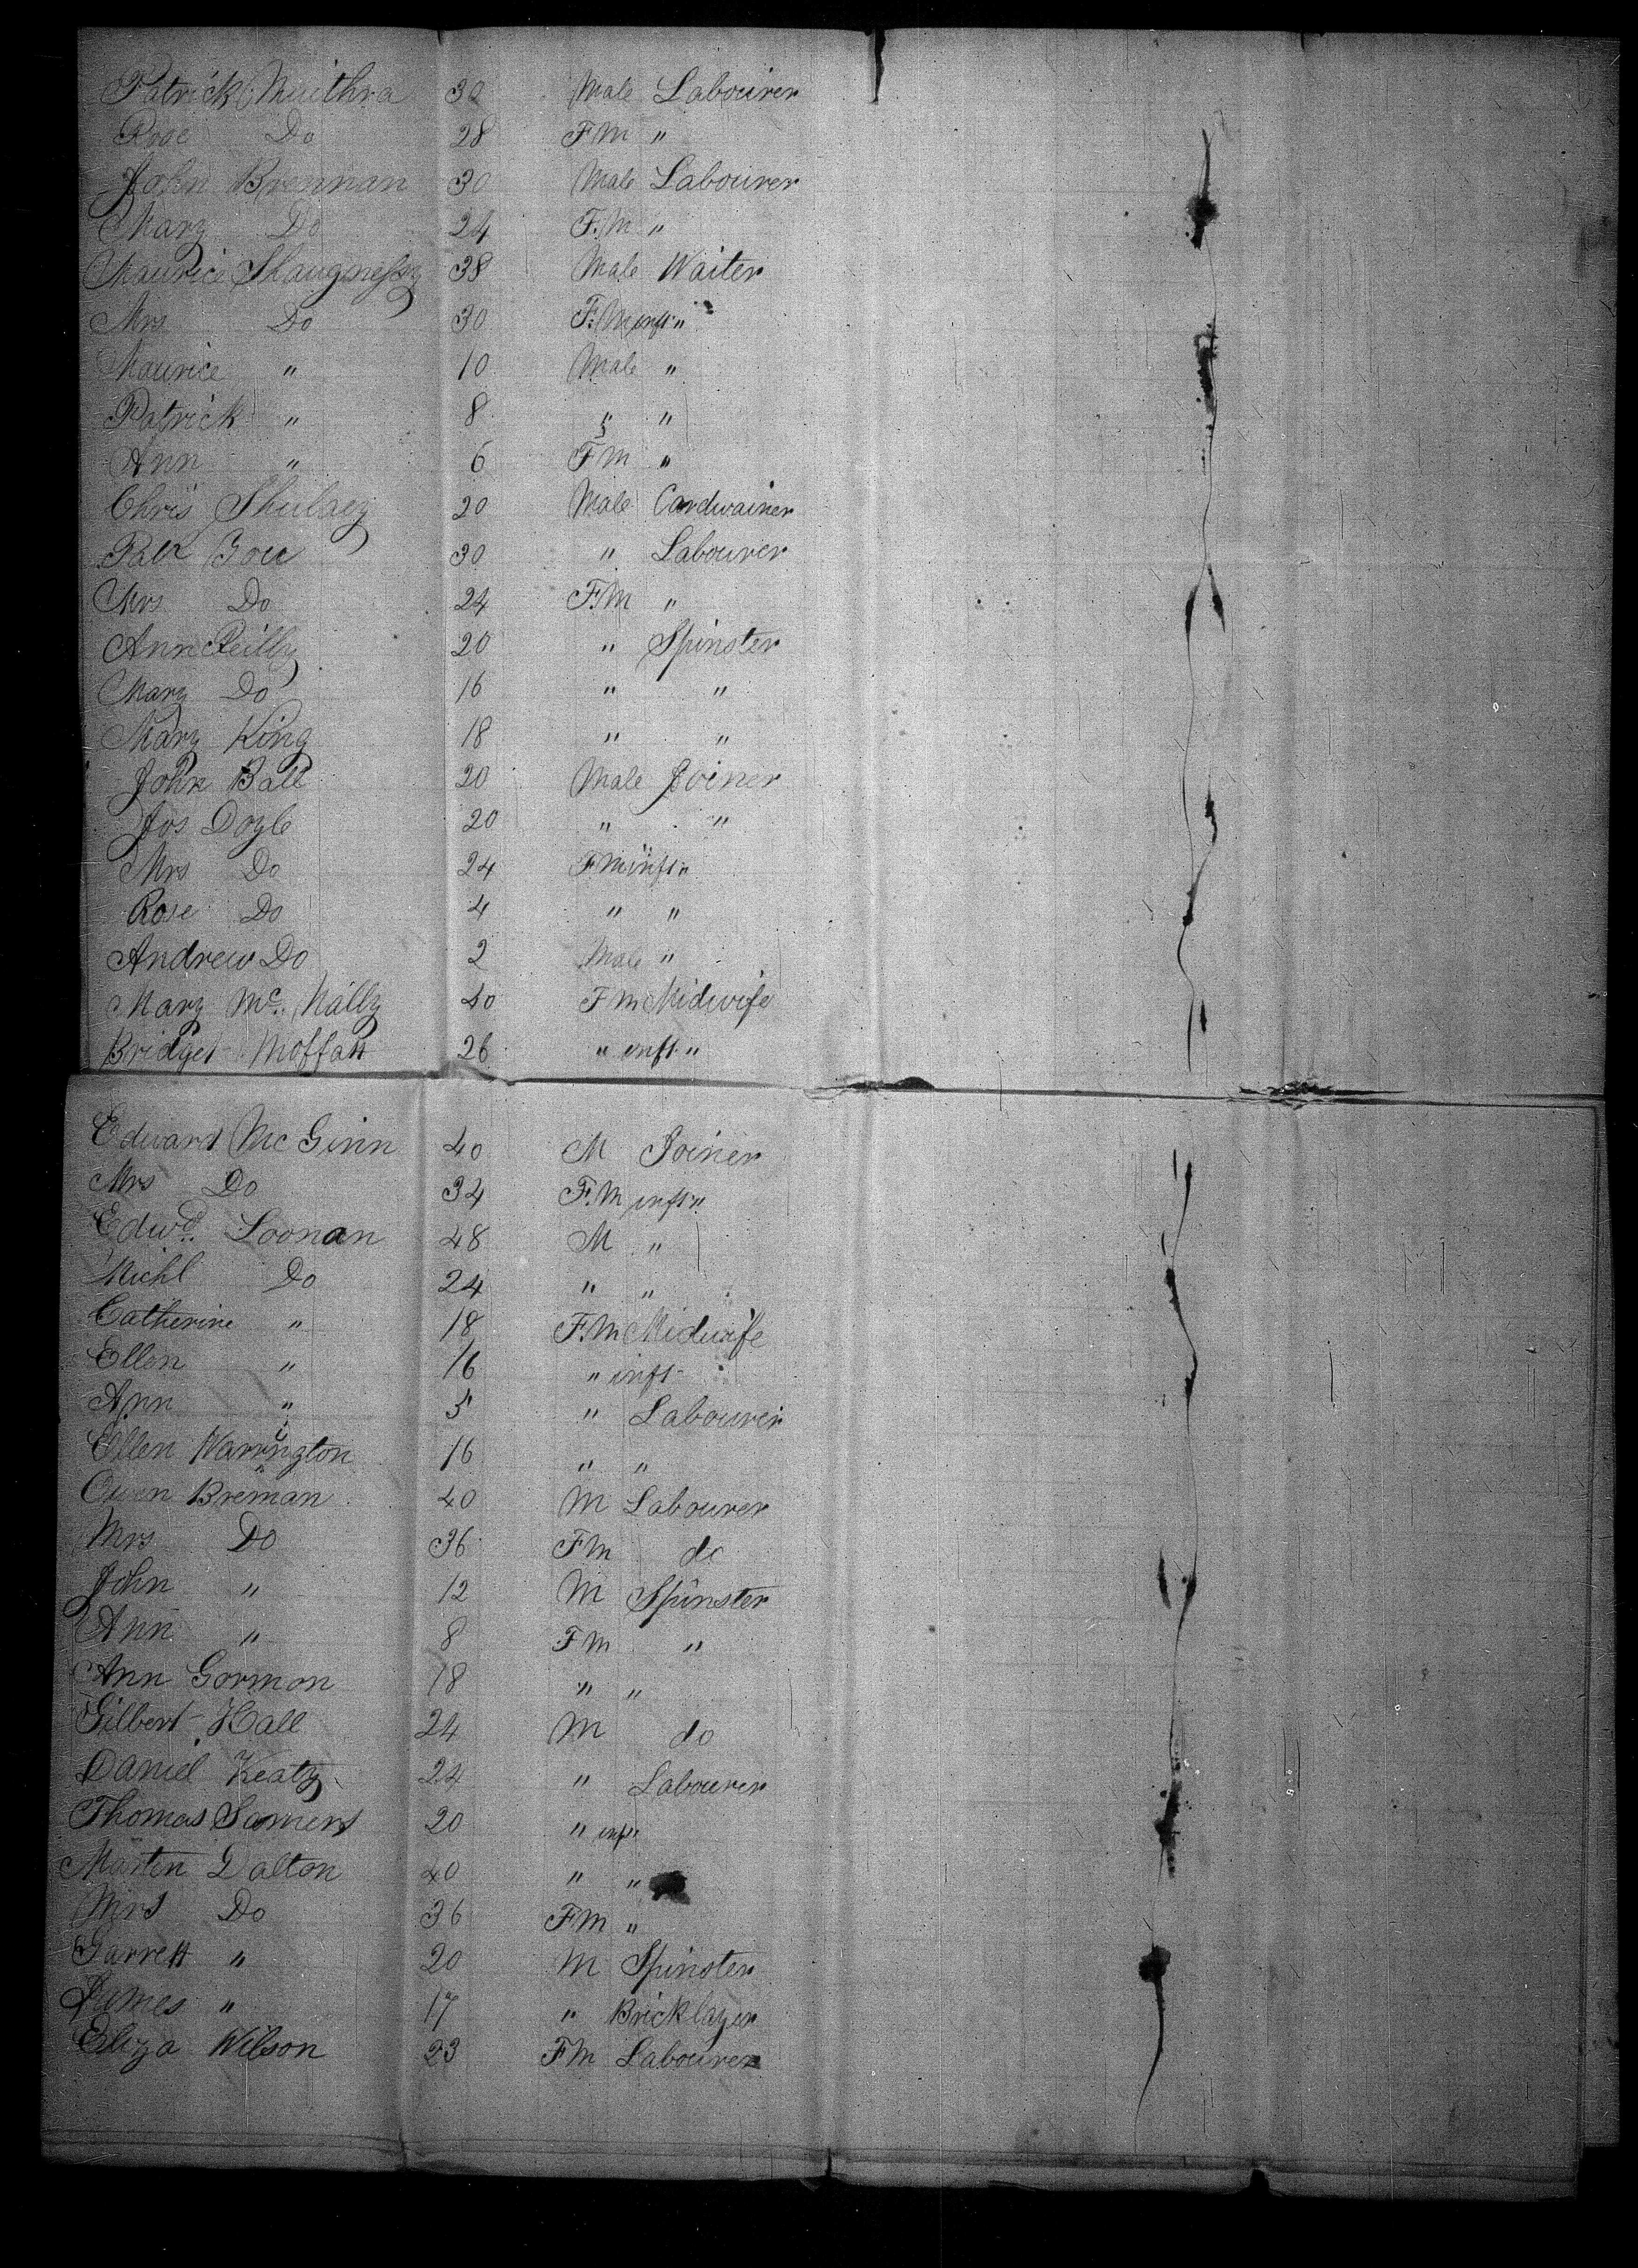 Patrick Muithra 30 Male Labourer
Rose Do 28 F M "
John Brennan 30 Male Labourer
Mary Do 24 F. M "
Maurice Shaugnessy 38 Male Waiter
Mrs Do 30 F. M inft "
Maurice " 10 Male "
Patrick " 8 " "
Ann " 6 F M "
Chris 20 Male Cordwainer
30 " Labourer
Mrs Do 24 F. M "
Ann Reilly 20 " Spinster
Mary Do 16 " "
Mary King 18 " "
John Ball 20 Male Joiner
Jos Doyle 20 " "
Mrs Do 24 F M inft "
Rose Do 4 " "
Andrew Do 2 Male "
Mary Mc. Nally 40 F M Midwife
Bridget Moffatt 26 " inft "
Edward Mc Ginn 40 M Joiner
Mrs Do 34 F. M inft "
Edwd. Loonan 48 M "
Michl Do 24 " "
Catherine " 18 F. M Midwife
Ellen " 16 " inft
Ann " 5 " Labourer
Ellen Warrington 16 " "
Owen Brennan 40 M Labourer
Mrs Do 36 F M do
John " 12 M Spinster
Ann " 8 F M "
Ann Gormon 18 " "
Gilbert Hall 24 M do
Daniel Keaty 24 " Labourer
Thomas 20 " inft "
Marten Dalton 40 " "
Mrs Do 36 F M "
Garrett " 20 M Spinster
James " 17 " Bricklayer
Eliza Wilson 23 F M Labourer